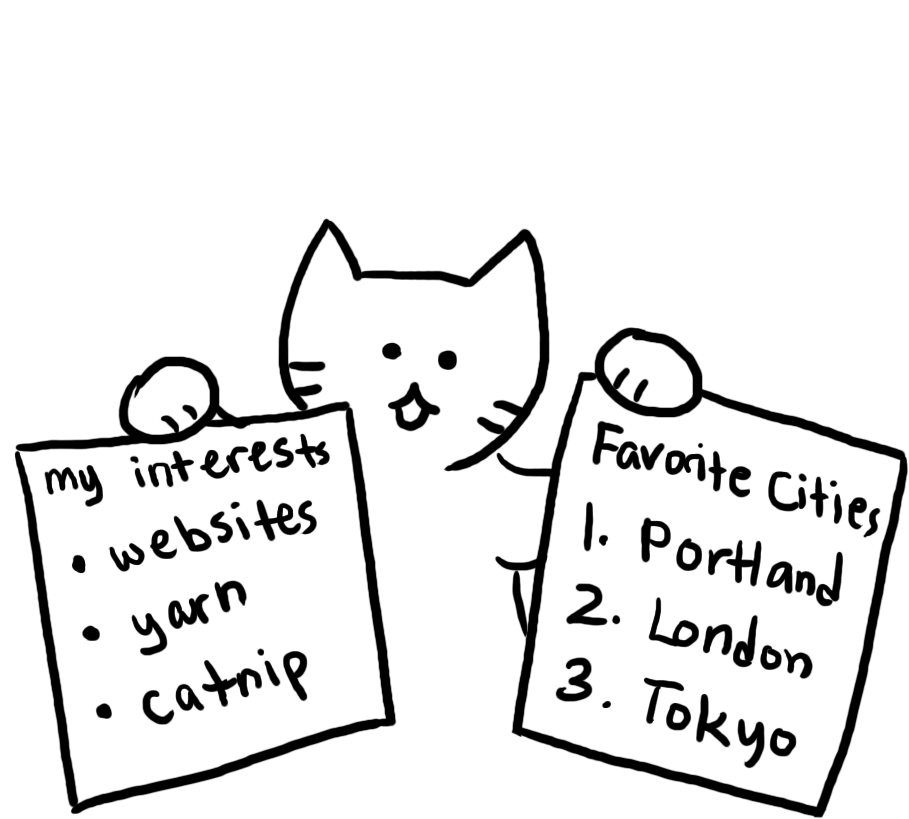 my interests
• websites
• yarn
• catnip
Favorite Cities
1. Portland
2. London
3. Tokyo